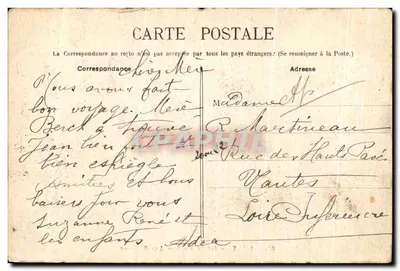 CARTE POSTALE
La Correspondance au recto n'est pas acceptée par tous les pays étrangers. (Se renseigner à la Poste.)
Correspondance
Adresse
Chère Mère
Nous avons fait
bon voyage. Mère
Beret a trouvé
jean bien
bien espiègle
Amitiés et bons
baisers pour vous
Suzanne René et
les enfants
Madame
R Martineau
Rue des Hauts Pavés
Nantes
Loire Inférieure